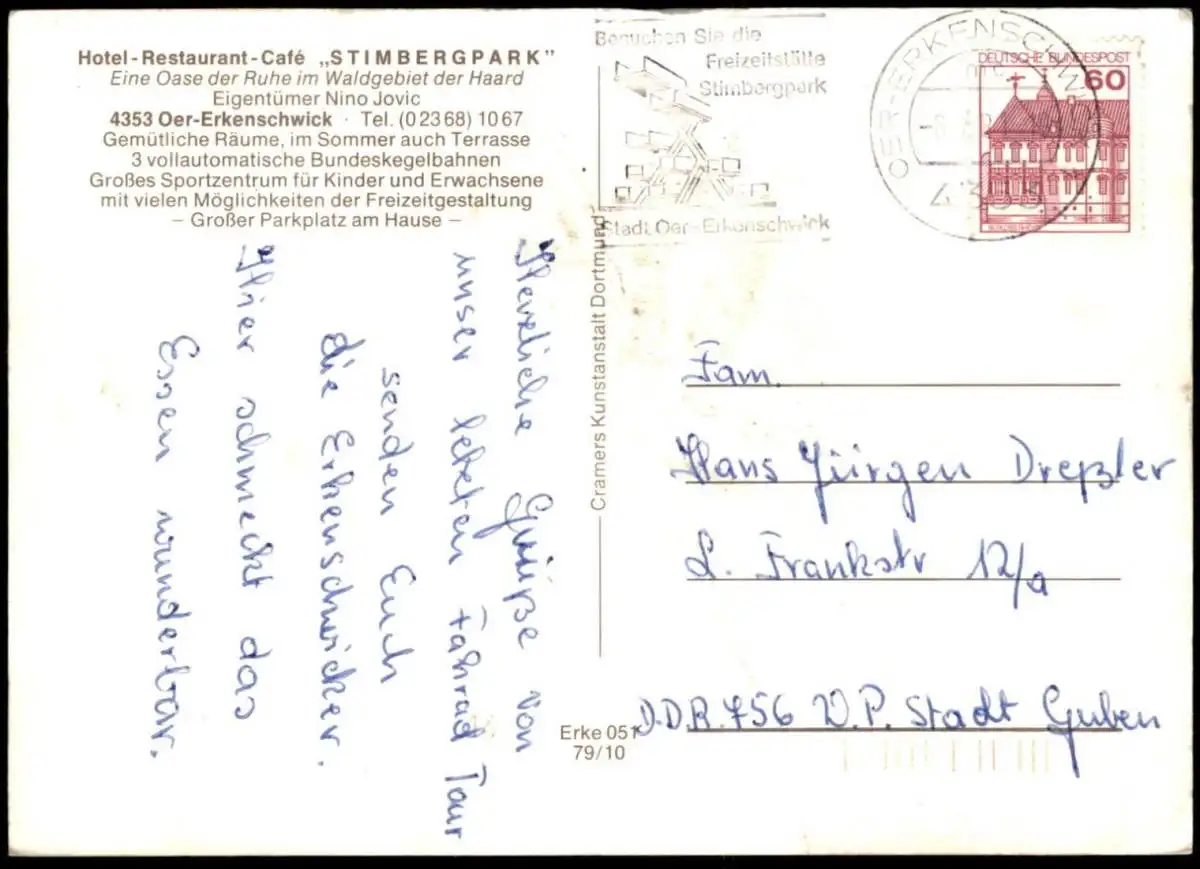 Hotel-Restaurant-Café „STIMBERGPARK"
Eine Oase der Ruhe im Waldgebiet der Haard
Eigentümer Nino Jovic
4353 Oer-Erkenschwick · Tel. (0 23 68) 10 67
Gemütliche Räume, im Sommer auch Terrasse
3 vollautomatische Bundeskegelbahnen
Großes Sportzentrum für Kinder und Erwachsene
mit vielen Möglichkeiten der Freizeitgestaltung
– Großer Parkplatz am Hause –
Besuchen Sie die
Freizeitstätte
Stimbergpark
Stadt Oer-Erkenschwick
OER-ERKENSCHWICK
DEUTSCHE BUNDESPOST
60
Herzliche Grüße von
unser letzten Fahrad Tour
senden Euch
die Erkenschwicker.
Hier schmeckt das
Essen wunderbar.
Cramers Kunstanstalt Dortmund
Erke 051
79/10
Fam.
Hans Jürgen Dreßler
L. Frankstr 12/a
D.D.R. 756 W.P. Stadt Guben